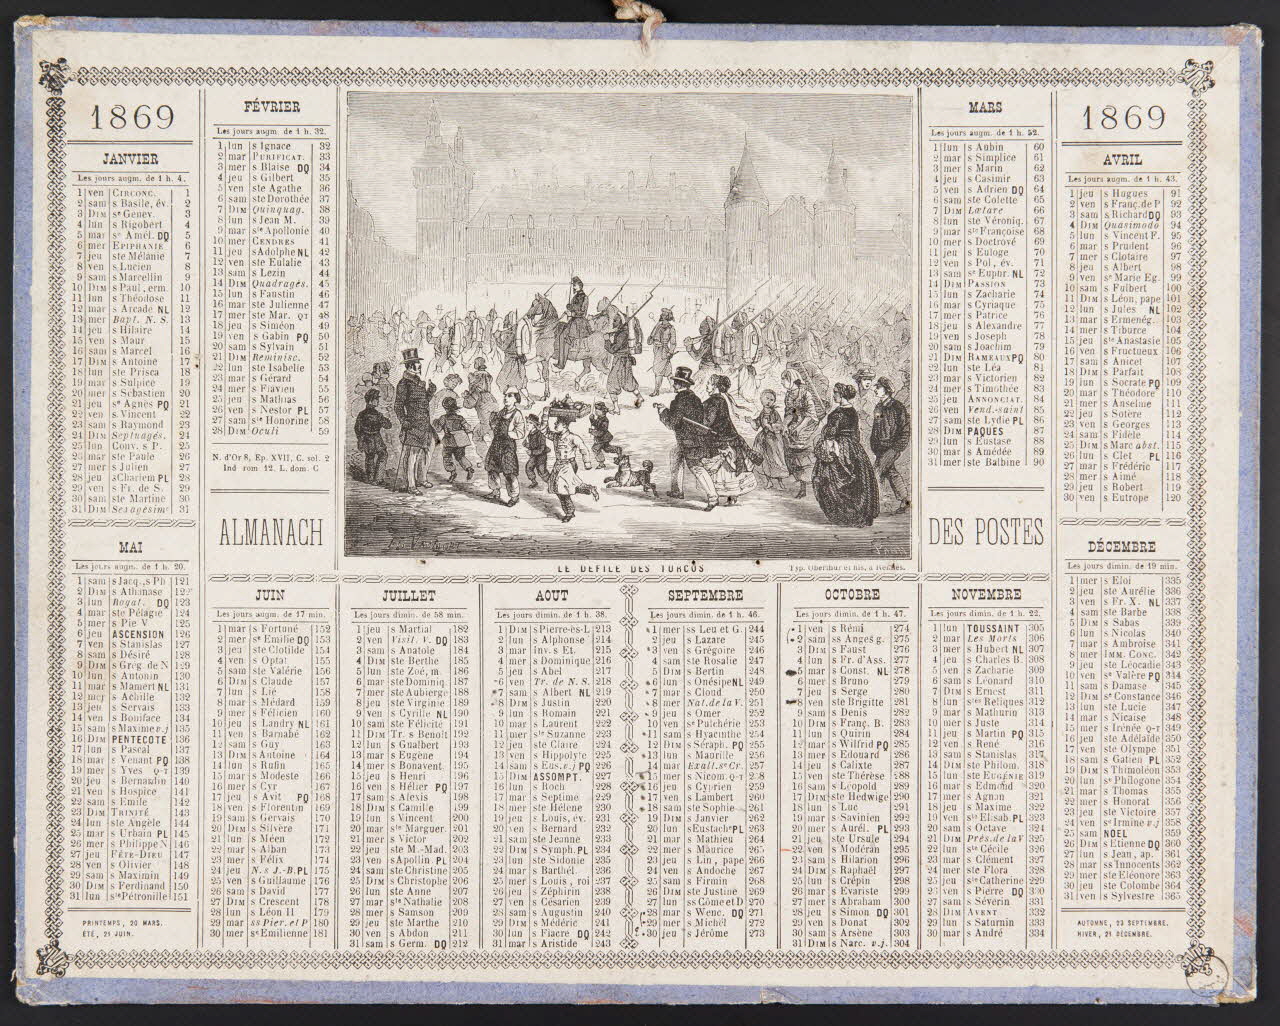 1869
JANVIER
Les jours augm. de 1 h. 4.
1 ven CIRCONC. 1
2 sam s Basile, év. 2
3 DIM ste Genev. 3
4 lun s Rigobert 4
5 mar ss Amél. DQ 5
6 mer EPIPHANIE 6
7 jeu ste Mélanie 7
8 ven s Lucien 8
9 sam s Marcellin 9
10 DIM s Paul, erm. 10
11 lun s Théodose 11
12 mar s Arcade NL 12
13 mer Bapt. N. S. 13
14 jeu s Hilaire 14
15 ven s Maur 15
16 sam s Marcel 16
17 DIM s Antoine 17
18 lun ste Prisca 18
19 mar s Sulpice 19
20 mer s Sebastien 20
21 jeu se Agnès PQ 21
22 ven s Vincent 22
23 sam s Raymond 23
24 DIM Septuagés. 24
25 lun Conv. s P. 25
26 mar ste Paule 26
27 mer s Julien 27
28 jeu s Charlem PL 28
29 ven s Fr. de S. 29
30 sam ste Martine 30
31 DIM Sexagésime 31
FÉVRIER
Les jours augm. de 1 h. 32.
1 lun s Ignace 32
2 mar PURIFICAT. 33
3 mer s Blaise DQ 34
4 jeu s Gilbert 35
5 ven ste Agathe 36
6 sam ste Dorothée 37
7 DIM Quinquag. 38
8 lun s Jean M. 39
9 mar ste Apollonie 40
10 mer CENDRES 41
11 jeu s Adolphe NL 42
12 ven ste Eulalie 43
13 sam s Lezin 44
14 DIM Quadragés. 45
15 lun s Faustin 46
16 mar ste Julienne 47
17 mer ste Mar. QT 48
18 jeu s Siméon 49
19 ven s Gabin PQ 50
20 sam s Sylvain 51
21 DIM Reminisc. 52
22 lun ste Isabelle 53
23 mar s Gérard 54
24 mer s Flavien 55
25 jeu s Mathias 56
26 ven s Nestor PL 57
27 sam ste Honorine 58
28 DIM Oculi 59
N. d'Or 8, Ep. XVII, C. sol. 2
Ind rom 12. L. dom. C
ALMANACH
LE DÉFILÉ DES TURCOS
Typ. Oberthur et fils, à Rennes.
MARS
Les jours augm. de 1 h. 52.
1 lun s Aubin 60
2 mar s Simplice 61
3 mer s Marin 62
4 jeu s Casimir 63
5 ven s Adrien DQ 64
6 sam ste Colette 65
7 DIM Lætare 66
8 lun ste Véroniq. 67
9 mar ste Françoise 68
10 mer s Doctrové 69
11 jeu s Euloge 70
12 ven s Pol, év. 71
13 sam se Euphr. NL 72
14 DIM PASSION 73
15 lun s Zacharie 74
16 mar s Cyriaque 75
17 mer s Patrice 76
18 jeu s Alexandre 77
19 ven s Joseph 78
20 sam s Joachim 79
21 DIM RAMEAUX PQ 80
22 lun ste Léa 81
23 mar s Victorien 82
24 mer s Timothée 83
25 jeu ANNONCIAT. 84
26 ven Vend.-saint 85
27 sam ste Lydie PL 86
28 DIM PAQUES 87
29 lun s Eustase 88
30 mar s Amédée 89
31 mer ste Balbine 90
DES POSTES
1869
AVRIL
Les jours augm. de 1 h. 43.
1 jeu s Hugues 91
2 ven s Franç. de P 92
3 sam s Richard DQ 93
4 DIM Quasimodo 94
5 lun s Vincent F. 95
6 mar s Prudent 96
7 mer s Clotaire 97
8 jeu s Albert 98
9 ven se Marie Eg. 99
10 sam s Fulbert 100
11 DIM s Léon, pape 101
12 lun s Jules NL 102
13 mar s Ermenég. 103
14 mer s Tiburce 104
15 jeu ste Anastasie 105
16 ven s Fructueux 106
17 sam s Anicet 107
18 DIM s Parfait 108
19 lun s Socrate PQ 109
20 mar s Théodore 110
21 mer s Anselme 111
22 jeu s Sotère 112
23 ven s Georges 113
24 sam s Fidèle 114
25 DIM s Marc abst. 115
26 lun s Clet PL 116
27 mar s Frédéric 117
28 mer s Aimé 118
29 jeu s Robert 119
30 ven s Eutrope 120
MAI
Les jours augm. de 1 h. 20.
1 sam s Jacq., s Ph 121
2 DIM s Athanase 122
3 lun Rogat. DQ 123
4 mar ste Pélagie 124
5 mer s Pie V 125
6 jeu ASCENSION 126
7 ven s Stanislas 127
8 sam s Désiré 128
9 DIM s Grég. de N 129
10 lun s Antonin 130
11 mar s Mamert NL 131
12 mer s Achille 132
13 jeu s Servais 133
14 ven s Boniface 134
15 sam s Maxime v.j 135
16 DIM PENTECOTE 136
17 lun s Pascal 137
18 mar s Venant PQ 138
19 mer s Yves Q-T 139
20 jeu s Bernardin 140
21 ven s Hospice 141
22 sam s Emile 142
23 DIM TRINITÉ 143
24 lun ste Angèle 144
25 mar s Urbain PL 145
26 mer s Philippe N 146
27 jeu FÊTE-DIEU 147
28 ven s Olivier 148
29 sam s Maximin 149
30 DIM s Ferdinand 150
31 lun ste Pétronille 151
PRINTEMPS, 20 MARS.
ÉTÉ, 21 JUIN.
JUIN
Les jours augm. de 17 min.
1 mar s Fortuné 152
2 mer se Emilie DQ 153
3 jeu ste Clotilde 154
4 ven s Optat 155
5 sam ste Valérie 156
6 DIM s Claude 157
7 lun s Lié 158
8 mar s Médard 159
9 mer s Félicien 160
10 jeu s Landry NL 161
11 ven s Barnabé 162
12 sam s Guy 163
13 DIM s Antoine 164
14 lun s Rufin 165
15 mar s Modeste 166
16 mer s Cyr 167
17 jeu s Avit PQ 168
18 ven s Florentin 169
19 sam s Gervais 170
20 DIM s Silvère 171
21 lun s Méen 172
22 mar s Alban 173
23 mer s Félix 174
24 jeu N. s J.-B. PL 175
25 ven s Guillaume 176
26 sam s David 177
27 DIM s Crescent 178
28 lun s Léon II 179
29 mar ss Pier. et P 180
30 mer se Emilienne 181
JUILLET
Les jours dimin. de 58 min.
1 jeu s Martial 182
2 ven Vis. V. DQ 183
3 sam s Anatole 184
4 DIM ste Berthe 185
5 lun ste Zoé, m. 186
6 mar ste Dominiq. 187
7 mer ste Aubierge 188
8 jeu ste Virginie 189
9 ven s Cyrille NL 190
10 sam ste Félicité 191
11 DIM Tr. s Benoît 192
12 lun s Gualbert 193
13 mar s Eugène 194
14 mer s Bonavent. 195
15 jeu s Henri 196
16 ven s Hélier PQ 197
17 sam s Alexis 198
18 DIM s Camille 199
19 lun s Vincent 200
20 mar ste Marguer. 201
21 mer s Victor 202
22 jeu ste M.-Mad. 203
23 ven s Apollin PL 204
24 sam ste Christine 205
25 DIM s Christophe 206
26 lun ste Anne 207
27 mar ste Nathalie 208
28 mer s Samson 209
29 jeu ste Marthe 210
30 ven s Abdon 211
31 sam s Germ. DQ 212
AOUT
Les jours dimin. de 1 h. 38.
1 DIM s Pierre-ès-L 213
2 lun s Alphonse 214
3 mar Inv. s Et. 215
4 mer s Dominique 216
5 jeu s Abel 217
6 ven Tr. de N. S. 218
7 sam s Albert NL 219
8 DIM s Justin 220
9 lun s Romain 221
10 mar s Laurent 222
11 mer ste Suzanne 223
12 jeu ste Claire 224
13 ven s Hippolyte 225
14 sam s Eus. v.j PQ 226
15 DIM ASSOMPT. 227
16 lun s Roch 228
17 mar s Septime 229
18 mer ste Hélène 230
19 jeu s Louis, év. 231
20 ven s Bernard 232
21 sam ste Jeanne 233
22 DIM s Symph. PL 234
23 lun ste Sidonie 235
24 mar s Barthél. 236
25 mer s Louis, roi 237
26 jeu s Zéphirin 238
27 ven s Césarien 239
28 sam s Augustin 240
29 DIM s Médéric 241
30 lun s Fiacre DQ 242
31 mar s Aristide 243
SEPTEMBRE
Les jours dimin. de 1 h. 46.
1 mer ss Leu et G. 244
2 jeu s Lazare 245
3 ven s Grégoire 246
4 sam ste Rosalie 247
5 DIM s Bertin 248
6 lun s Onésipe NL 249
7 mar s Cloud 250
8 mer Nat. de la V. 251
9 jeu s Omer 252
10 ven se Pulchérie 253
11 sam s Hyacinthe 254
12 DIM s Séraph. PQ 255
13 lun s Maurille 256
14 mar Exalt. se Cr. 257
15 mer s Nicom. Q-T 258
16 jeu s Cyprien 259
17 ven s Lambert 260
18 sam ste Sophie 261
19 DIM s Janvier 262
20 lun s Eustache PL 263
21 mar s Mathieu 264
22 mer s Maurice 265
23 jeu s Lin, pape 266
24 ven s Andoche 267
25 sam s Firmin 268
26 DIM ste Justine 269
27 lun ss Côme et D 270
28 mar s Wenc. DQ 271
29 mer s Michel 272
30 jeu s Jérôme 273
OCTOBRE
Les jours dimin. de 1 h. 47.
1 ven s Rémi 274
2 sam ss Anges g. 275
3 DIM s Faust 276
4 lun s Fr. d'Ass. 277
5 mar s Const. NL 278
6 mer s Bruno 279
7 jeu s Serge 280
8 ven ste Brigitte 281
9 sam s Denis 282
10 DIM s Franç. B. 283
11 lun s Quirin 284
12 mar s Wilfrid PQ 285
13 mer s Edouard 286
14 jeu s Calixte 287
15 ven ste Thérèse 288
16 sam s Léopold 289
17 DIM ste Hedwige 290
18 lun s Luc 291
19 mar s Savinien 292
20 mer s Aurél. PL 293
21 jeu ste Ursule 294
22 ven s Modéran 295
23 sam s Hilarion 296
24 DIM s Raphaël 297
25 lun s Crépin 298
26 mar s Evariste 299
27 mer s Abraham 300
28 jeu s Simon DQ 301
29 ven s Donat 302
30 sam s Arsène 303
31 DIM s Narc. v.j. 304
NOVEMBRE
Les jours dimin. de 1 h. 22.
1 lun TOUSSAINT 305
2 mar Les Morts 306
3 mer s Hubert NL 307
4 jeu s Charles B. 308
5 ven s Zacharie 309
6 sam s Léonard 310
7 DIM s Ernest 311
8 lun stes Reliques 312
9 mar s Mathurin 313
10 mer s Juste 314
11 jeu s Martin PQ 315
12 ven s René 316
13 sam s Stanislas 317
14 DIM ste Philom. 318
15 lun ste EUGÉNIE 319
16 mar s Edmond 320
17 mer s Agnan 321
18 jeu s Maxime 322
19 ven se Elisab. PL 323
20 sam s Octave 324
21 DIM Prés. de la V 325
22 lun ste Cécile 326
23 mar s Clément 327
24 mer ste Flora 328
25 jeu ste Catherine 329
26 ven s Pierre DQ 330
27 sam s Séverin 331
28 DIM AVENT 332
29 lun s Saturnin 333
30 mar s André 334
DÉCEMBRE
Les jours dimin. de 19 min.
1 mer s Eloi 335
2 jeu ste Aurélie 336
3 ven s Fr. X. NL 337
4 sam ste Barbe 338
5 DIM s Sabas 339
6 lun s Nicolas 340
7 mar s Ambroise 341
8 mer IMM. CONC. 342
9 jeu ste Léocadie 343
10 ven ste Valère PQ 344
11 sam s Damase 345
12 DIM se Constance 346
13 lun ste Lucie 347
14 mar s Nicaise 348
15 mer s Irénée Q-T 349
16 jeu ste Adélaïde 350
17 ven ste Olympe 351
18 sam s Gatien PL 352
19 DIM s Thimoléon 353
20 lun s Philogone 354
21 mar s Thomas 355
22 mer s Honorat 356
23 jeu ste Victoire 357
24 ven s Irmine v.j 358
25 sam NOEL 359
26 DIM s Etienne DQ 360
27 lun s Jean, ap. 361
28 mar ss Innocents 362
29 mer ste Eléonore 363
30 jeu ste Colombe 364
31 ven s Sylvestre 365
AUTOMNE, 23 SEPTEMBRE.
HIVER, 21 DÉCEMBRE.